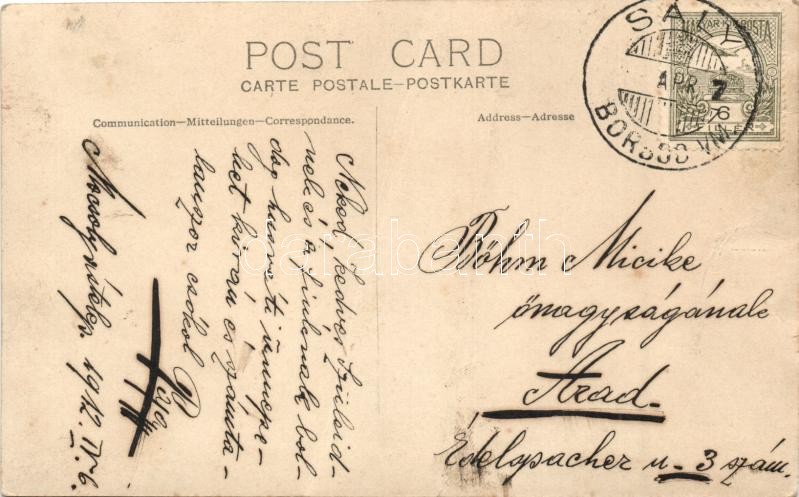 POST CARD
CARTE POSTALE—POSTKARTE
Communication—Mitteilungen—Correspondance.
Address—Adresse
SÁLY
APR 7
BORSOD VM.
MAGYAR KIR. POSTA
6
FILLÉR
Neked, kedves Szüleid-
nek és a fiúknak bol-
dog husvéti ünnepe-
ket kiván és számta-
lanszor csókol
1912. IV. 6.
Böhm Micike
önagyságának
Arad.
Edelspacher u. 3 szám.